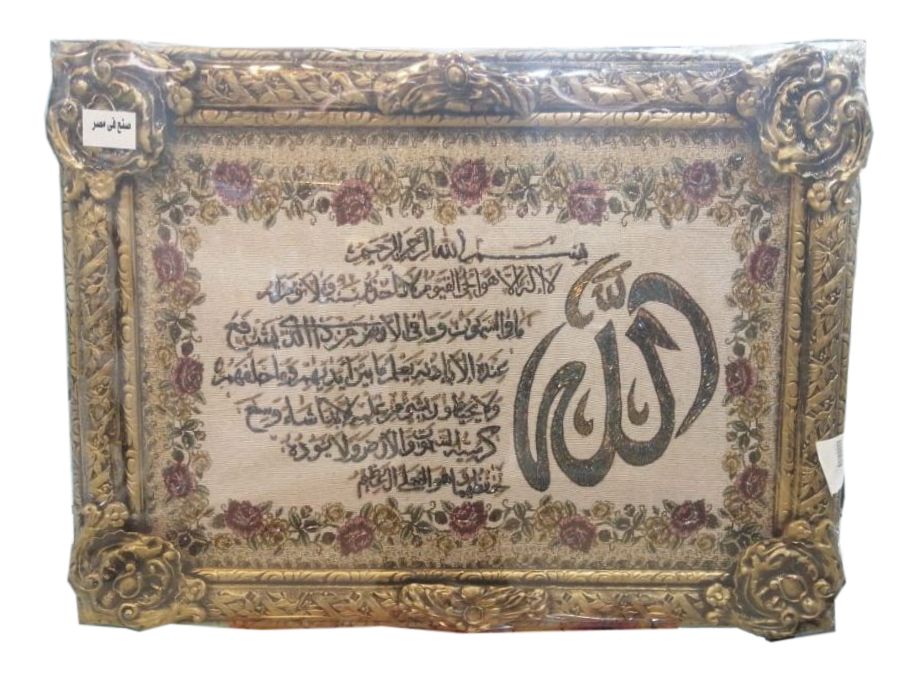 صنع في مصر
بسم الله الرحمن الرحيم
الله
لا إله إلا هو الحي القيوم لا تأخذه سنة ولا نوم له
ما في السموت وما في الأرض من ذا الذي يشفع
عنده إلا بإذنه يعلم ما بين أيديهم وما خلفهم
ولا يحيطون بشيء من علمه إلا بما شاء وسع
كرسيه السموت والأرض ولا يؤده
حفظهما وهو العلي العظيم